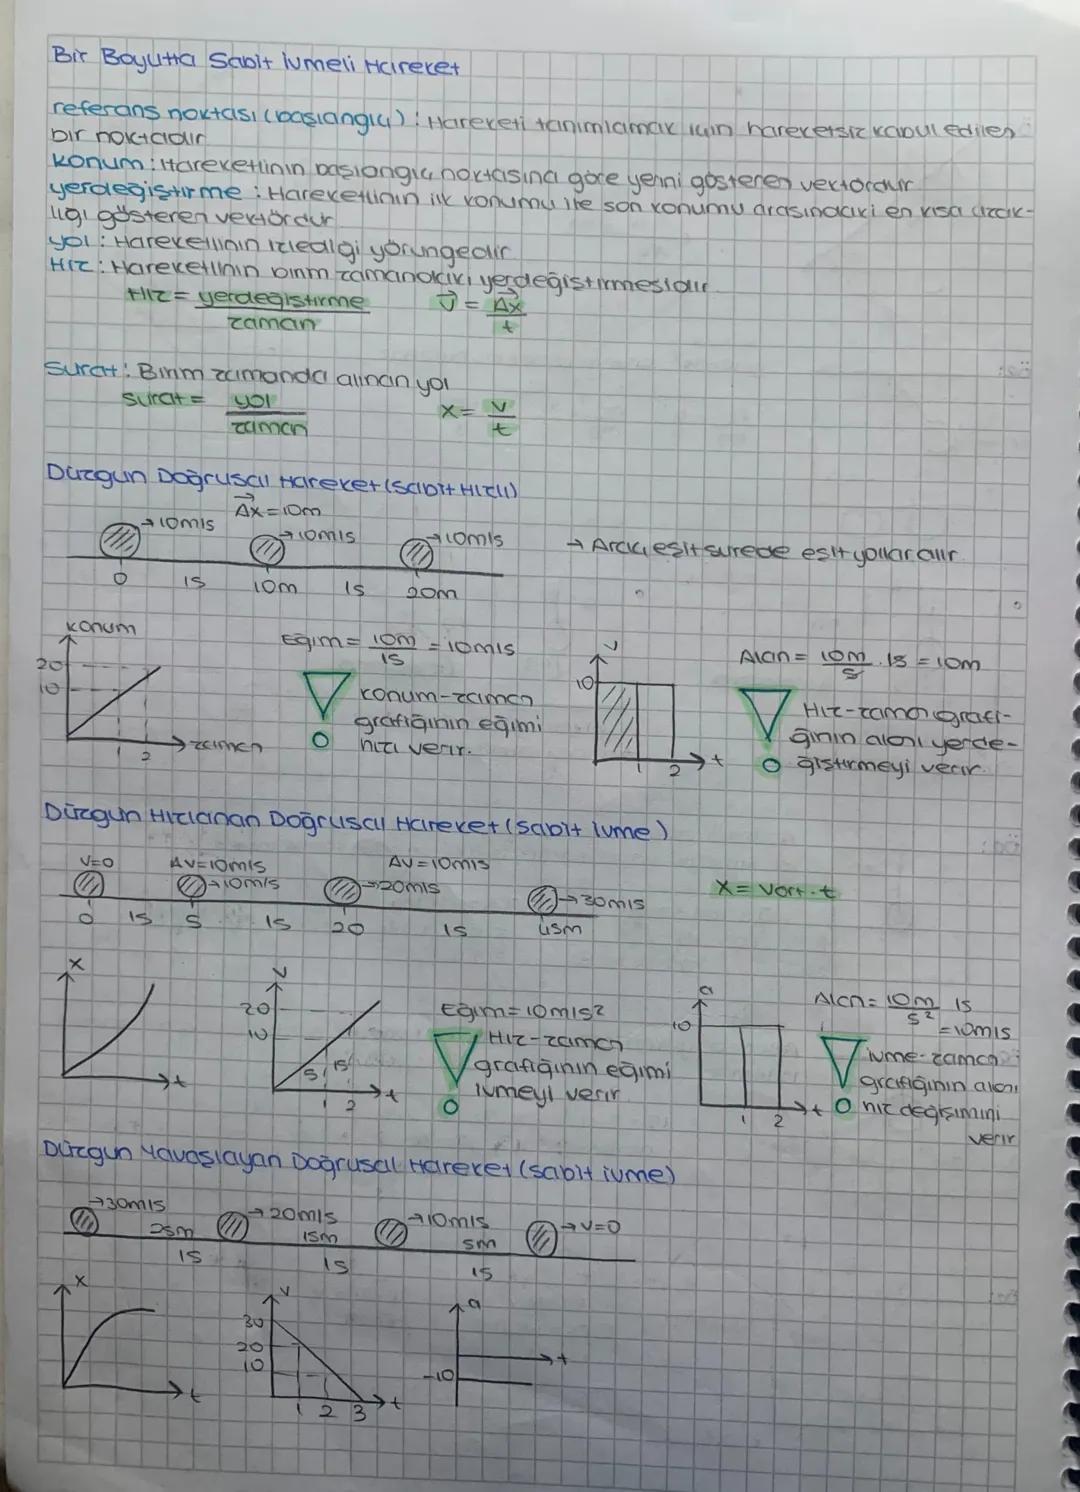 Bir Boyutta Sabit İvmeli Hareket
referans noktası (başlangıç) : Hareketi tanımlamak için hareketsiz kabul edilen
bir noktadır
konum : Hareketlinin başlangıç noktasına göre yerini gösteren vektördür
yerdeğiştirme : Hareketlinin ilk konumu ile son konumu arasındaki en kısa uzak-
lığı gösteren vektördür
yol : Hareketlinin izlediği yörüngedir
Hız : Hareketlinin birim zamandaki yerdeğiştirmesidir
Hız = yerdeğiştirme / zaman
v⃗ = Δx⃗ / t
Surat : Birim zamanda alınan yol
Surat = yol / zaman
x = v / t
Düzgün Doğrusal Hareket (Sabit Hızlı)
Δx⃗ = 10m
→10m/s →10m/s →10m/s → Aracı eşit surede eşit yollar alır
0 1s 10m 1s 20m
konum
20
10
1 2 → zaman
Eğim = 10m / 1s = 10m/s
konum-zaman
grafiğinin eğimi
hızı verir.
v
10
1 2 t
Alan = 10m / s . 1s = 10m
Hız-zaman grafi-
ğinin alanı yerde-
ğiştirmeyi verir.
Düzgün Hızlanan Doğrusal Hareket (sabit ivme)
V=0 ΔV=10m/s ΔV=10m/s
→10m/s →20m/s →30m/s
0 1s 5 1s 20 1s 45m
X = Vort . t
x
t
v
20
10
5 15
1 2 t
Eğim = 10m/s²
Hız-zaman
grafiğinin eğimi
ivmeyi verir
a
10
1 2 t
Alan = 10m / s² 1s
= 10m/s
ivme-zaman
grafiğinin alanı
hız değişimini
verir
Düzgün Yavaşlayan Doğrusal Hareket (sabit ivme)
→30m/s →20m/s →10m/s →V=0
25m 15m 5m
1s 1s 1s
x
t
v
30
20
10
1 2 3 t
a
t
-10